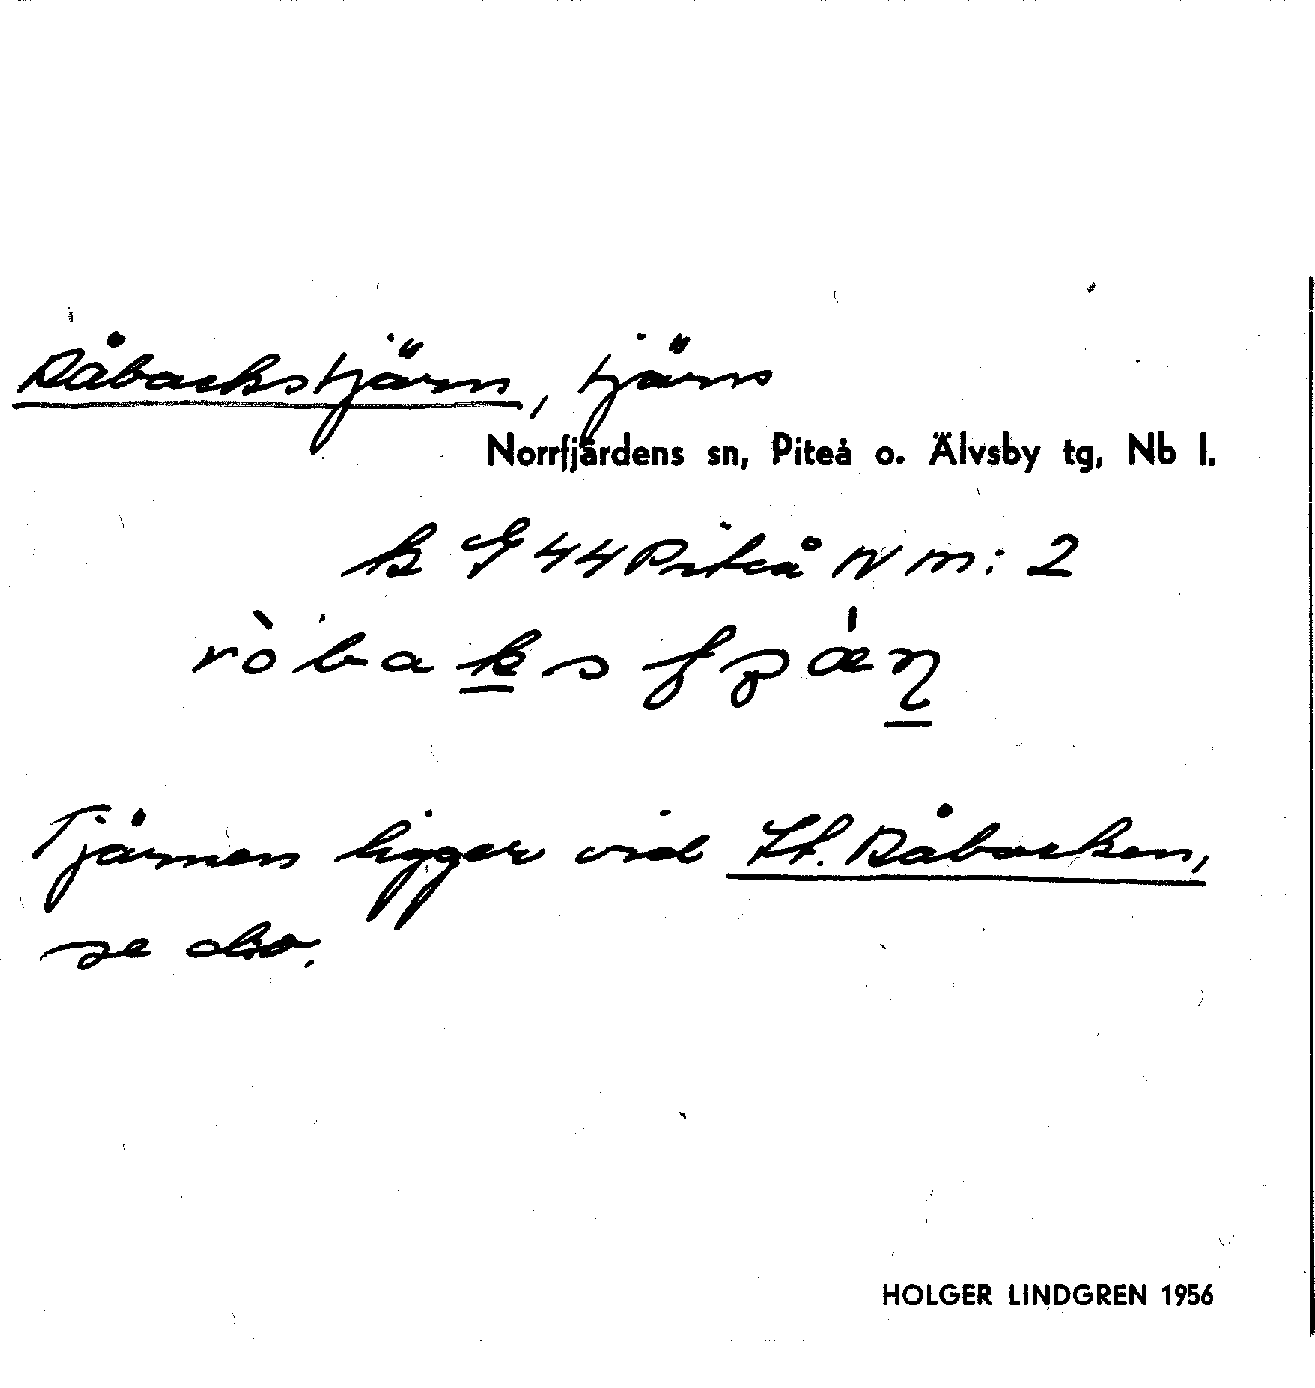 Råbackstjärn, tjärn
Norrfjärdens sn, Piteå o. Älvsby tg, Nb l.
k 44 Piteå NV m: 2
Tjärnen ligger vid St. Råbacken,
se d:o.
HOLGER LINDGREN 1956